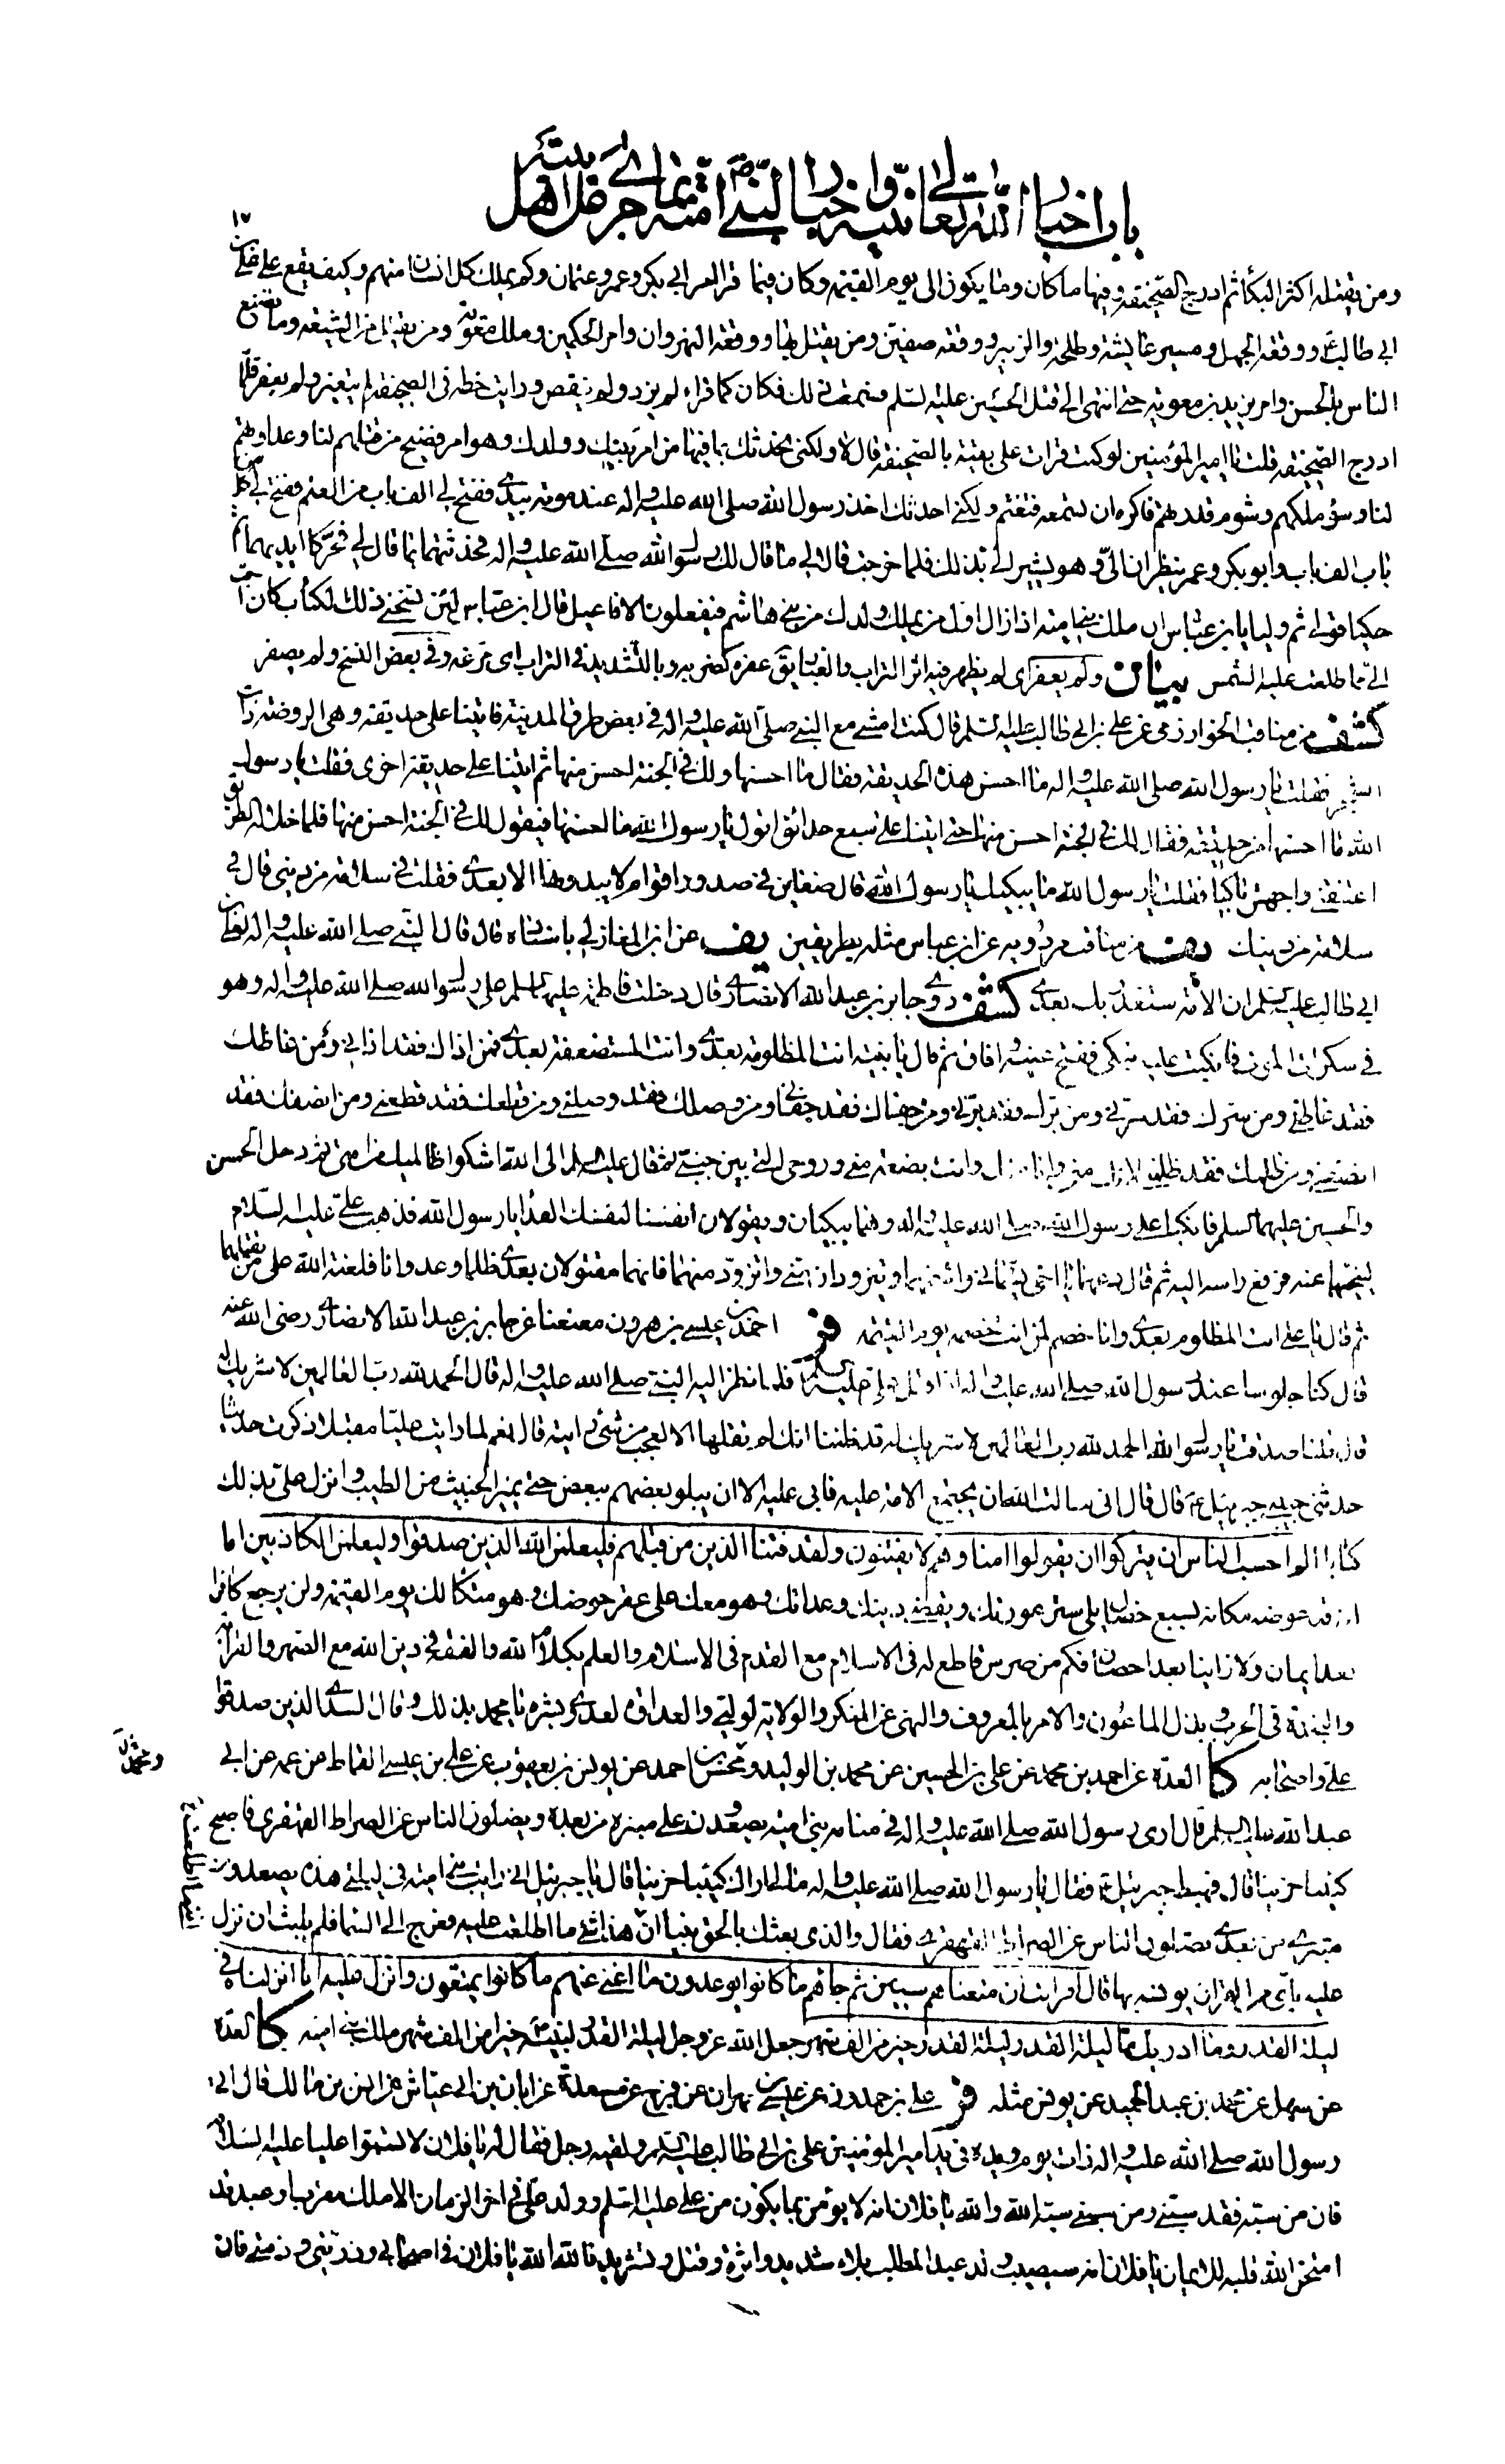 باب اخبار الله تعالى نبيه واخبار النبي امته بما جرى على اهل بيته
١٧
ومن يقتله اكثر البكاء ثم ادرج الصحيفة وفيها ما كان وما يكون الى يوم القيمة وكان فيما قرأ امر ابي بكر وعمر وعثمان وكم يملك كل انسان منهم وكيف يقع على علي بن
ابي طالب ووقعة الجمل ومسير عايشة وطلحة والزبير ووقعة صفين ومن يقتل بها ووقعة النهروان وامر الحكمين وملك معوية ومن يقتل من الشيعة وما تصنع
الناس بالحسن وامر يزيد بن معوية حتى انتهى الى قتل الحسين عليه السلم فسمعت ذلك فكان كما قرأ لم يزد ولم ينقص ورايت خطه في الصحيفة لم يتغير ولم يعفر فلما
ادرج الصحيفة قلت يا امير المؤمنين لو كنت قرات علي بقية الصحيفة قال لا ولكني احدثك بما فيها من امر بيتك وولدك وهو امر فضيع من قتلهم لنا وعداوتهم
لنا وسوء ملكهم وشوم قدرتهم فاكره ان تسمعه فتغتم ولكني احدثك اخذ رسول الله صلى الله عليه واله عند موته بيدي ففتح لي الف باب من العلم ففتح لي من كل
باب الف باب وابو بكر وعمر ينظران الي وهو يشير لي بذلك فلما خرجت قال لي ما قال لك رسول الله صلى الله عليه واله فحدثتهما بما قال لي فحركا ايديهما ثم
حكيا قولي ثم وليا يا بن عباس ان ملك بني امية اذا زال اول من يملك ولدك من بني هاشم فيفعلون الافاعيل قال ابن عباس لئن نسخني ذلك الكتاب كان احب
الي مما طلعت عليه الشمس بيان ولم يعفر اى لم يظهر فيه اثر التراب والغبار يق عفره كضربه وبالتشديد في التراب اى مرغه وفي بعض النسخ ولم يصفر
كشف من مناقب الخوارزمى عن علي بن ابي طالب عليه السلم قال كنت امشي مع النبي صلى الله عليه واله في بعض طرق المدينة فاتينا على حديقة وهى الروضة ذات
الشجر فقلت يا رسول الله صلى الله عليه واله ما احسن هذه الحديقة فقال ما احسنها ولك في الجنة احسن منها ثم اتينا على حديقة اخرى فقلت يا رسول
الله ما احسنها من حديقة فقال لك في الجنة احسن منها حتى اتينا على سبع حدائق اقول يا رسول الله ما احسنها فيقول لك في الجنة احسن منها فلما خلا له الطريق
اعتنقني واجهش باكيا فقلت يا رسول الله ما يبكيك يا رسول الله قال ضغاين في صدور اقوام لا يبدونها الا بعدي فقلت في سلامة من ديني قال في
سلامة من دينك من مناقب مردويه عن ابن عباس مثله بطريقين يف عن ابن المغازلي باسناده قال قال النبي صلى الله عليه واله لعلي بن
ابي طالب عليه السلم ان الامة ستغدر بك بعدي كشف روى جابر بن عبد الله الانصاري قال دخلت فاطمة عليها السلم على رسول الله صلى الله عليه واله وهو
في سكرات الموت فانكبت عليه تبكي ففتح عينه وافاق ثم قال يا بنية انت المظلومة بعدي وانت المستضعفة بعدي فمن اذاك فقد اذاني ومن غاظك
فقد غاظني ومن سرك فقد سرني ومن برك فقد برني ومن جفاك فقد جفاني ومن وصلك فقد وصلني ومن قطعك فقد قطعني ومن انصفك فقد
انصفني ومن ظلمك فقد ظلمني لانك مني وانا منك وانت بضعة مني وروحي التي بين جنبي ثم قال عليه السلم الى الله اشكوا ظالميك من امتي ثم دخل الحسن
والحسين عليهما السلم فانكبا على رسول الله صلى الله عليه واله وهما يبكيان ويقولان انفسنا لنفسك الفداء يا رسول الله فذهب علي عليه السلام
لينحيهما عنه فرفع راسه اليه ثم قال دعهما يا اخي يشماني واشمهما ويتزودان مني واتزود منهما فانهما مقتولان بعدي ظلما وعدوانا فلعنة الله على من يقتلهما
ثم قال يا علي انت المظلوم بعدي وانا خصم لمن انت خصمه يوم القيمة فر احمد بن عيسى بن هرون معنعنا عن جابر بن عبد الله الانصاري رضى الله عنه
قال كنا جلوسا عند رسول الله صلى الله عليه واله اذ اقبل علي عليه السلم فلما نظر اليه النبي صلى الله عليه واله قال الحمد لله رب العالمين لا شريك له
قال قلنا صدقت يا رسول الله الحمد لله رب العالمين لا شريك له قد ظننا انك لم تقلها الا لعجب من شئ رايته قال نعم لما رايت عليا مقبلا ذكرت حديثا
حدثني حبيبي جبرئيل قال قال اني سالت الله ان يجتمع الامة عليه فابى عليه الا ان يبلو بعضهم ببعض حتى يميز الخبيث من الطيب وانزل علي بذلك
كتابا الم احسب الناس ان يتركوا ان يقولوا امنا وهم لا يفتنون ولقد فتنا الذين من قبلهم فليعلمن الله الذين صدقوا وليعلمن الكاذبين اما
انه قد عوضه مكانه بسبع خصال يلي ستر عورتك ويقضي دينك وعداتك وهو معك على عقر حوضك وهو متكا لك يوم القيمة ولن يرجع كافرا
بعد ايمان ولا زانيا بعد احصان فكم من ضرس قاطع له في الاسلام مع القدم في الاسلام والعلم بكلام الله والفقه في دين الله مع الصهر والقرابة
والنجدة في الحرب وبذل الماعون والامر بالمعروف والنهى عن المنكر والولاية لوليي والعداوة لعدوي بشره يا محمد بذلك وقال السدي الذين صدقوا
علي واصحابه كا العدة عن احمد بن محمد عن علي بن الحسين عن محمد بن الوليد ومحسن بن احمد عن يونس بن يعقوب عن علي بن عيسى القماط عن عمه عن ابي
عبد الله عليه السلم قال راى رسول الله صلى الله عليه واله في منامه بني امية يصعدون على منبره من بعده ويضلون الناس عن الصراط القهقرى فاصبح
كئيبا حزينا قال فهبط جبرئيل فقال يا رسول الله صلى الله عليه واله مالي اراك كئيبا حزينا قال يا جبرئيل اني رايت بني امية في ليلتي هذه يصعدون
منبرى من بعدي يضلون الناس عن الصراط القهقرى فقال والذى بعثك بالحق نبيا ان هذا شئ ما اطلعت عليه فعرج الى السماء فلم يلبث ان نزل
عليه باى من القران يونسه بها قال افرايت ان متعناهم سنين ثم جاءهم ما كانوا يوعدون ما اغنى عنهم ما كانوا يمتعون وانزل عليه انا انزلناه في
ليلة القدر وما ادريك ما ليلة القدر ليلة القدر خير من الف شهر جعل الله عز وجل ليلة القدر لنبيه خيرا من الف شهر ملك بني امية كا العدة
عن سهل عن محمد بن عبد الحميد عن يونس مثله فر علي بن حمدون عن عيسى بن مهران عن فرج عن مسعدة عن ابان بن ابي عياش عن انس بن مالك قال ان
رسول الله صلى الله عليه واله ذات يوم ويده في يد امير المؤمنين علي بن ابي طالب عليه السلم ولقيه رجل فقال له يا فلان لا تسبوا عليا عليه السلام
فان من سبه فقد سبني ومن سبني سبه الله والله يا فلان انه لا يؤمن بما يكون من علي عليه السلم وولد علي في اخر الزمان الا ملك مقرب او عبد قد
امتحن الله قلبه للايمان يا فلان انه سيصيب ولد عبد المطلب بلاء شديد واثرة وقتل وتشريد فالله الله يا فلان في اصحابي وذريتي وذمتي فان